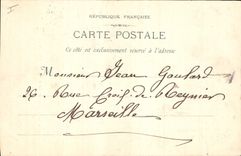 RÉPUBLIQUE FRANÇAISE
CARTE POSTALE
Ce côté est exclusivement réservé à l'adresse
Monsieur Jean Goulard
26 Rue Croix-de-Reynier
Marseille